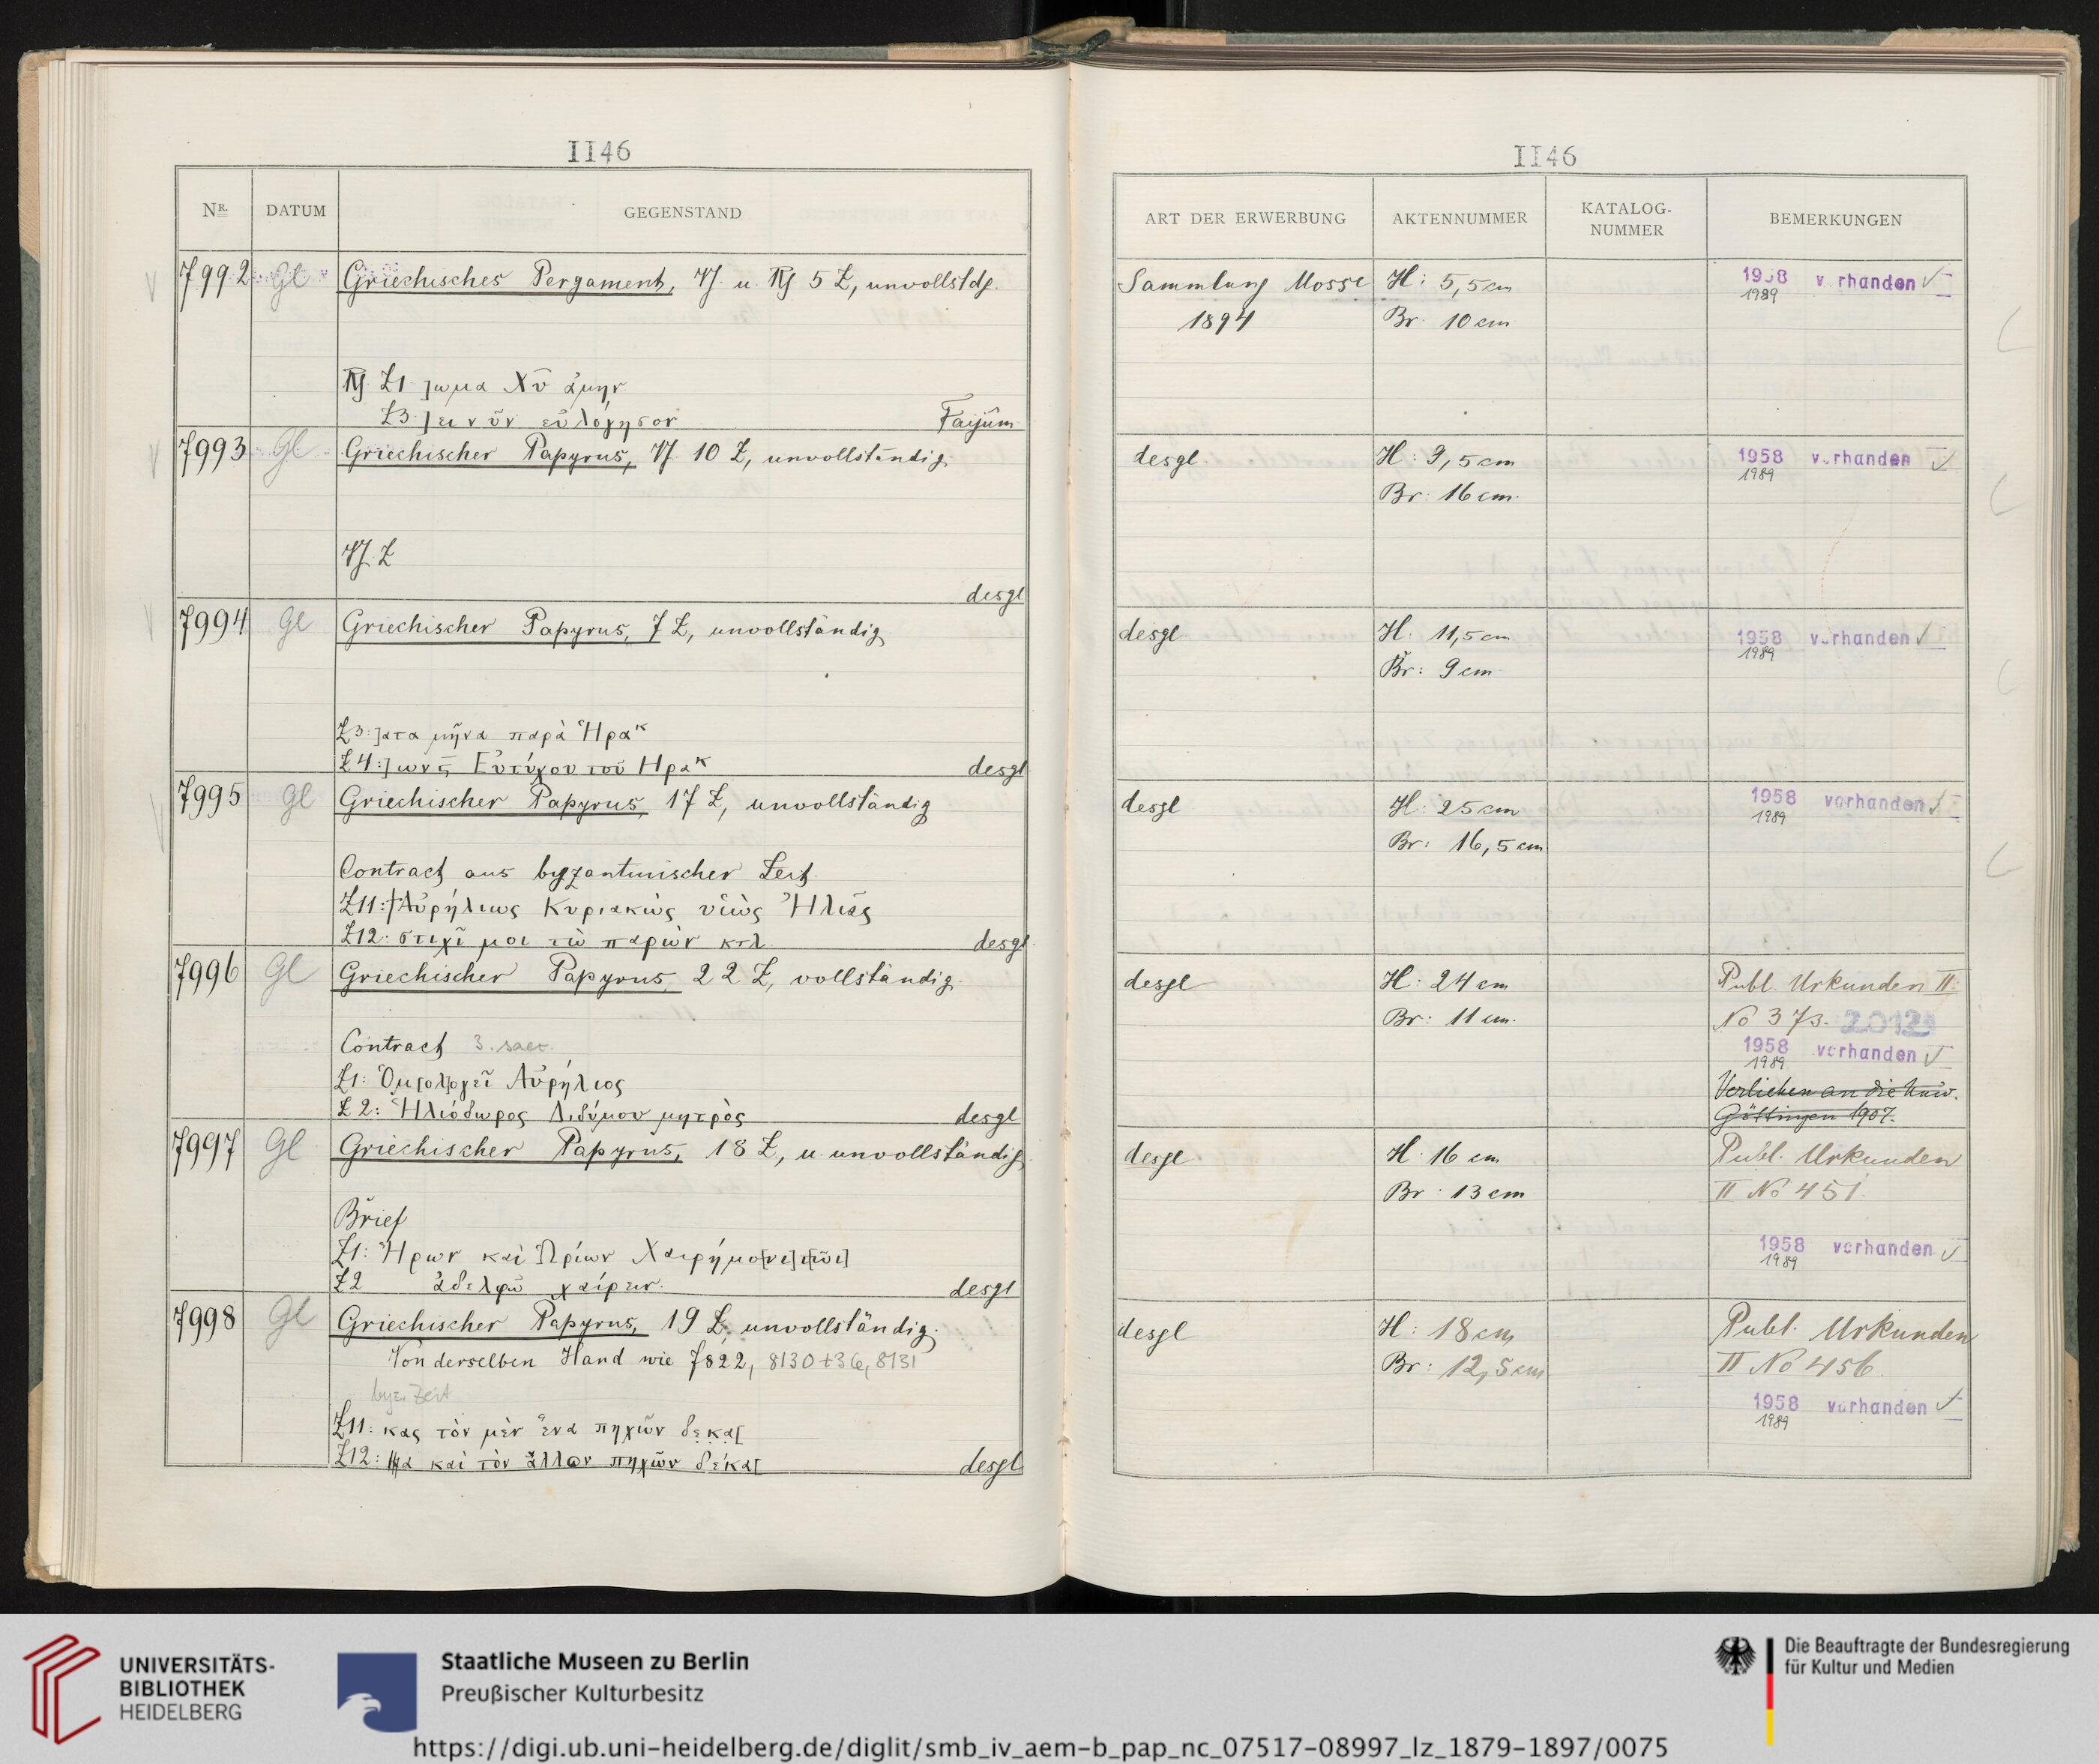 1146
NR. DATUM GEGENSTAND
7992 Gl Griechisches Pergament, Vs. u. Rs 5 Z, unvollstdg.
Rs. Z1 ]ωμα Χῦ ἀμην
Z3 ]ει νῦν εὐλόγησον Faijûm
7993 Gl Griechischer Papyrus, Vs. 10 Z, unvollständig
Vs. Z
desgl
7994 Gl Griechischer Papyrus, 7 Z, unvollständig
Z3:]ατα μῆνα παρὰ Ἡρακ
Z4:]ων Εὐτύχου τοῦ Ηρακ desgl
7995 Gl Griechischer Papyrus, 17 Z, unvollständig
Contract aus byzantinischer Zeit
Z11: Αὐρήλιως Κυριακὼς υἱὼς Ἠλιᾶς
Z12: στιχῖ μοι τὼ παρὼν κτλ. desgl.
7996 Gl Griechischer Papyrus, 22 Z, vollständig.
Contract 3. saec.
Z1: Ὁμ[ολ]ογεῖ Αὐρήλιος
Z2: Ἡλιόδωρος Διδύμου μητρὸς desgl
7997 Gl Griechischer Papyrus, 18 Z, u. unvollständig
Brief
Z1: Ἥρων καὶ Ὡρίων Χαιρήμο[νι] τ[ῶι]
Z2 ἀδελφῶ χαίρειν. desgl
7998 Gl Griechischer Papyrus, 19 Z, unvollständig.
Von derselben Hand wie 7822, 8130+36, 8131
byz. Zeit
Z11: κας τὸν μὲν ἕνα πηχῶν δεκα[
Z12: α καὶ τὸν ἄλλον πηχῶν δέκα[ desgl
1146
ART DER ERWERBUNG AKTENNUMMER KATALOG-NUMMER BEMERKUNGEN
Sammlung Mosse H: 5,5 cm 1958 vorhanden
1894 Br. 10 cm 1989
desgl. H: 9,5 cm 1958 vorhanden
Br: 16 cm. 1989
desgl H: 11,5 cm 1958 vorhanden
Br: 9 cm 1989
desgl H: 25 cm 1958 vorhanden
Br: 16,5 cm 1989
desgl H: 24 cm Publ. Urkunden II
Br: 11 cm. No 373. 2012
1958 vorhanden
1989
Verliehen an die Univ.
Göttingen 1907.
desgl H: 16 cm Publ. Urkunden
Br: 13 cm II No 451.
1958 vorhanden
1989
desgl H: 18 cm Publ. Urkunden
Br: 12,5 cm II No 456.
1958 vorhanden
1989
UNIVERSITÄTS-
BIBLIOTHEK
HEIDELBERG
Staatliche Museen zu Berlin
Preußischer Kulturbesitz
Die Beauftragte der Bundesregierung
für Kultur und Medien
https://digi.ub.uni-heidelberg.de/diglit/smb_iv_aem-b_pap_nc_07517-08997_lz_1879-1897/0075